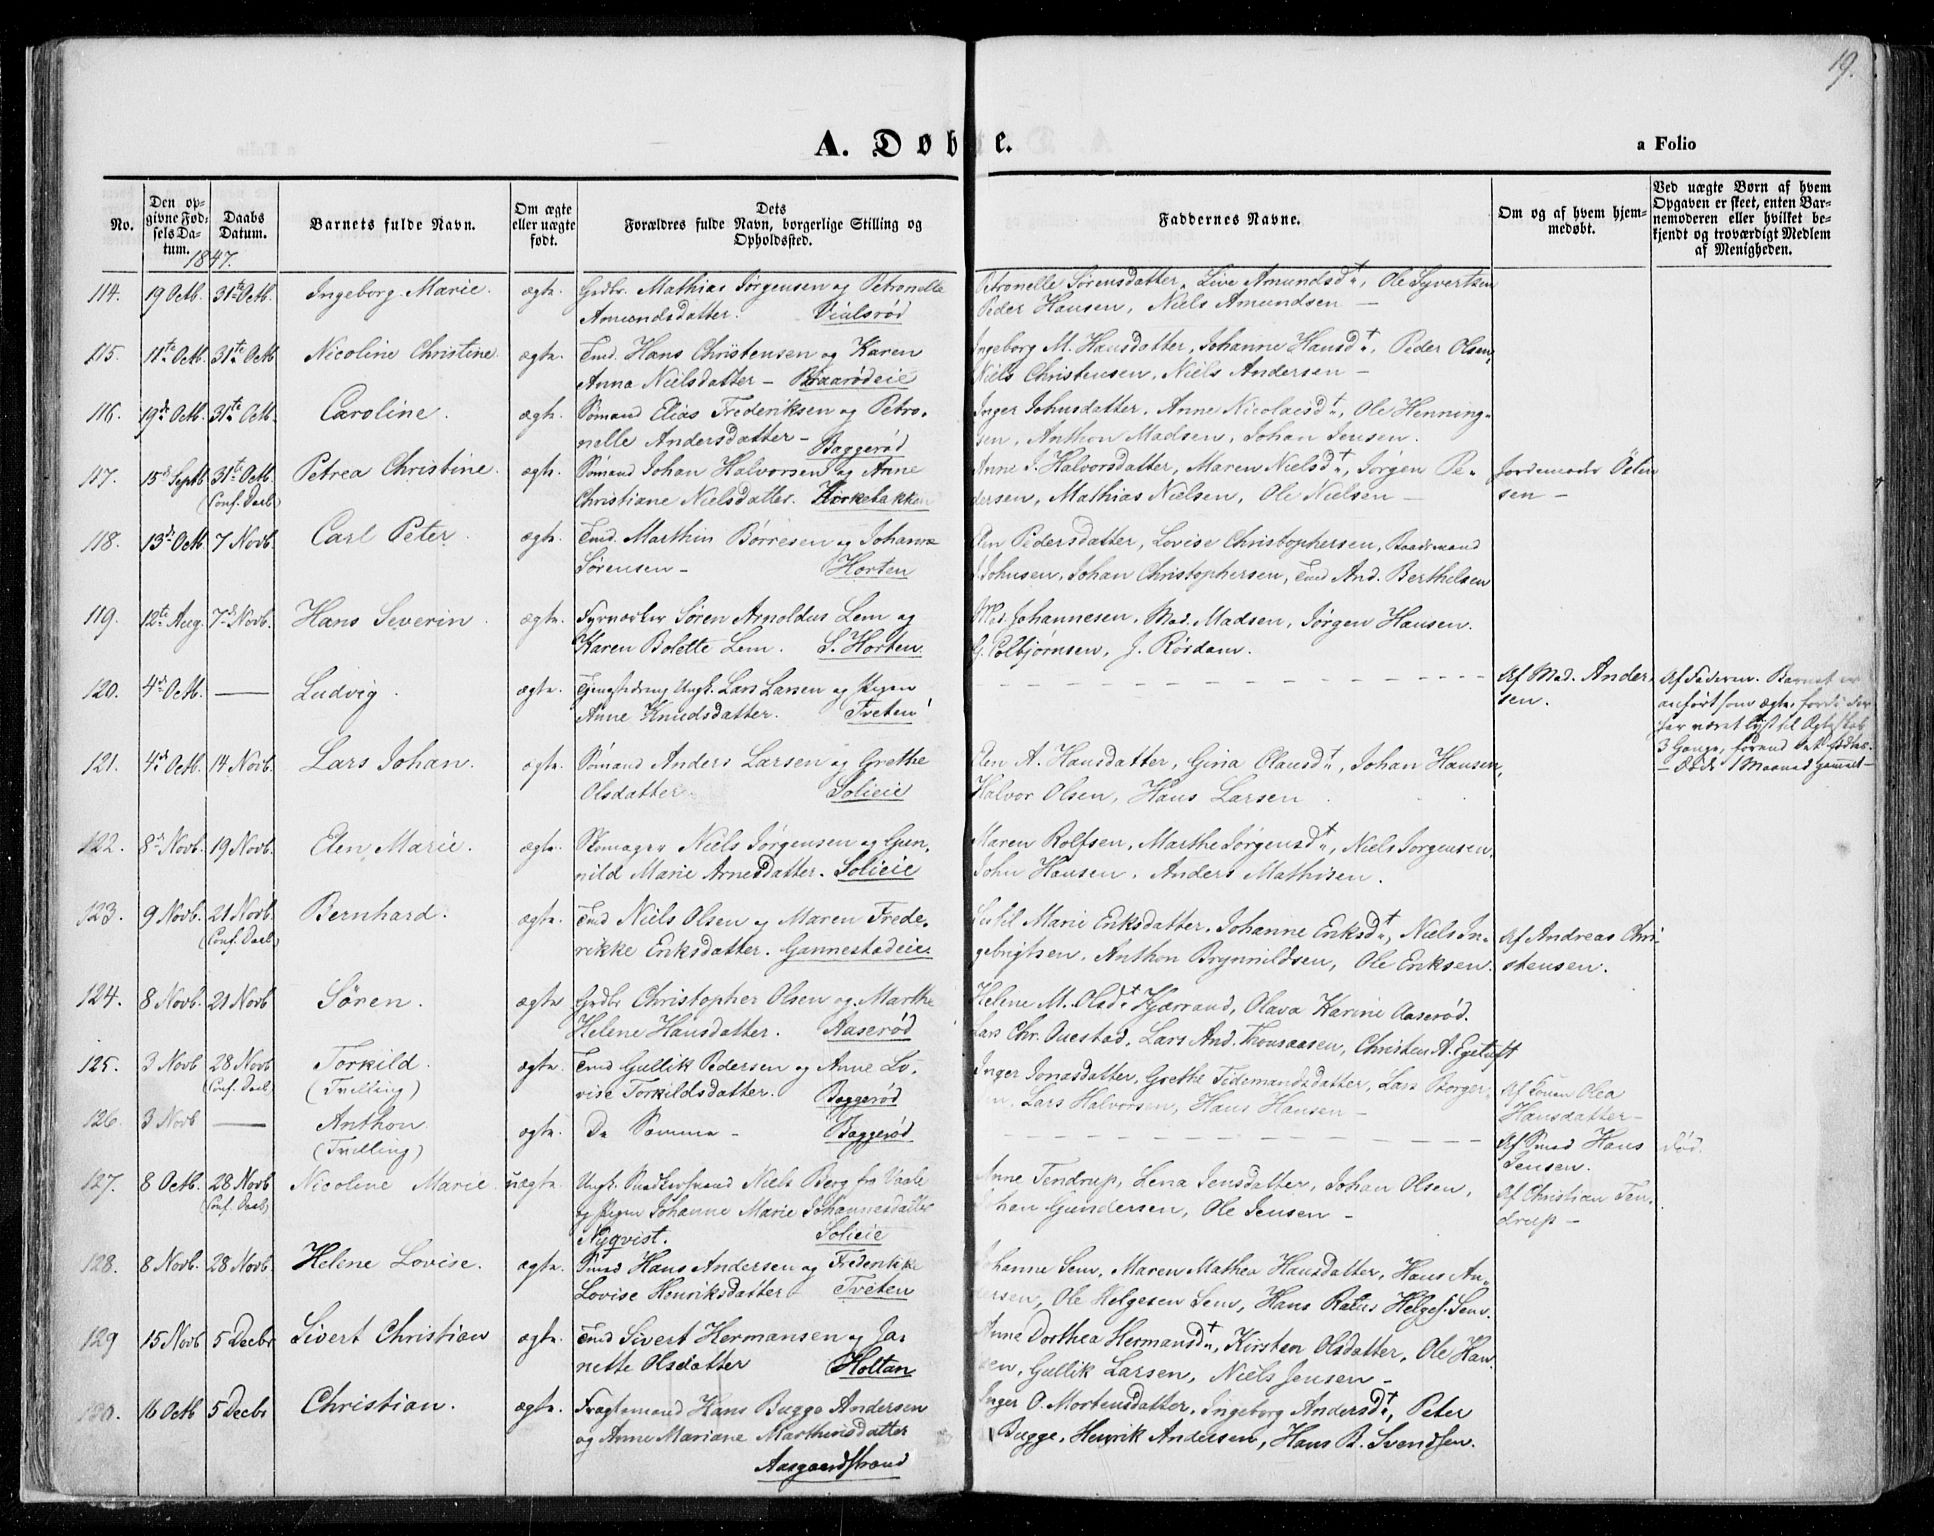 19.
A. Døbte.
a Folio
No.
Den opgivne Fødselsdatum.
Daabs Datum.
Barnets fulde Navn.
Om ægte eller uægte født.
Dets Forældres fulde Navn, borgerlige Stilling og Opholdssted.
Faddernes Navne.
Om og af hvem hjemmedøbt.
Ved uægte Børn af hvem Opgaven er skeet, enten Barnemoderen eller hvilket bekjendt og troværdigt Medlem af Menigheden.
1847.
114. 19 Octb. 31te Octb. Ingeborg Marie. ægte. Grdbr. Mathias Jørgensen og Petronelle
Amundsdatter. Vialsrød
Petronelle Sørensdatter, Live Amundsdtr, Ole Syvertsen
Peder Hansen, Niels Amundsen —
115. 11te Octb. 31te Octb Nicoline Christine. ægte. Tmd. Hans Christensen og Karen
Anna Nielsdatter — Braarødeie
Ingeborg M. Hansdatter, Johanne Hansdtr, Peder Olsen,
Niels Christensen, Niels Andersen —
116. 19de Octb. 31te Octb. Caroline. ægte. Sømand Elias Frederiksen og Petro-
nelle Andersdatter — Baggerød
Inger Johnsdatter, Anne Nicolaisdtr, Ole Henning-
sen, Anthon Madsen, Johan Jensen.
117. 15de Septb. 31te Octb. (Conf. Daab) Petrea Christine. ægte. Sømand Johan Halvorsen og Anne
Christiane Nielsdatter. Korketakken
Anne J. Halvorsdatter, Maren Nielsdtr, Jørgen Pe-
dersen, Mathias Nielsen, Ole Nielsen —
Jordemoder
sen —
118. 13de Octb. 7 Novb. Carl Peter. ægte. Tmd. Marthin Børresen og Johanne
Sørensen — Horten
Elen Pedersdatter, Lovise Christophersen, Baadsmand
J. Johnsen, Johan Christophersen, Tmd And. Berthelsen
119. 12te Aug. 7de Novb. Hans Severin. ægte. Fyrverker Søren Arnoldus Lem og
Karen Bolette Lem. S. Horten.
Md. Johannesen, Mad. Madsen, Jørgen Hansen.
G. Colbjørnsen, J. Rørdam.
120. 4de Octb. — Ludvig. ægte. Tjenestedreng Ungk. Lars Larsen og Pigen
Anne Knudsdatter. Tveten
Af Mad. Ander-
sen.
Af Faderen. Barnet er
anført som ægte, fordi der
har været lyst til Ægteskab
3 Gange, førend det fødtes.
— Døde 1 Maaned gammelt —
121. 4de Octb. 14 Novb. Lars Johan. ægte. Sømand Anders Larsen og Grethe
Olsdatter. Solieie
Elen A. Hansdatter, Gina Olausdtr, Johan Hansen,
Halvor Olsen, Hans Larsen.
122. 8de Novb. 19 Novb. Elen Marie. ægte. Skomager Niels Jørgensen og Gun-
nild Marie Arnesdatter. Solieie
Maren Rolfsen, Marthe Jørgensdtr, Niels Jørgensen,
John Hansen, Anders Mathisen.
123. 9 Novb. 21 Novb. (Conf. Daab) Bernhard. ægte. Tmd Niels Olsen og Maren Frede-
rikke Eriksdatter. Gannestadeie.
Marie Eriksdatter, Johanne Eriksdtr, Niels In-
gebrigtsen, Anthon Brynnildsen, Ole Eriksen.
Af Andreas Chri-
stensen.
124. 8 Novb. 21 Novb Søren. ægte Grdbr Christopher Olsen og Marthe
Helene Hansdatter. Aaserød
Helene M. Olsdtr Kjærrand, Olava Karine Aaserød.
Lars Chr. Questad, Lars And. Thorsaasen, Christen A. Egetuft
125. 3 Novb 28 Novb (Conf. Daab) Torkild. (Tvilling) ægte. Tmd Gullik Pedersen og Anne Lo-
vise Torkildsdatter. Baggerød
Inger Jonasdatter, Grethe Tidemandsdatter, Lars Borger-
sen, Lars Halvorsen, Hans Hansen —
Af Konen Olea
Hansdatter —
126. 3 Novb — Anthon. (Tvilling) ægte. De Samme — Baggerød
Af Smed Hans
Jensen.
død.
127. 8 Octb. 28 Novb (Conf. Daab) Nicoline Marie. uægte. Ungk. Niels Berg fra Vaale
og Pigen Johanne Marie Johannesdatter
Nyqvist. Solieie
Anne Tendrup, Lena Jensdatter, Johan Olsen,
Johan Gundersen, Ole Jensen —
Af Christian Ten-
drup —
128. 8 Novb. 28 Novb. Helene Lovise. ægte. Smed Hans Andersen og Frederikke
Lovise Henriksdatter Tveten
Johanne Sem, Maren Mathea Hansdatter, Hans An-
dersen, Ole Helgesen Sem, Hans Ratus Helges. Sem.
129 15 Novb 5 Decbr Sivert Christian ægte. Tmd Sivert Hermansen og Ja-
nette Olsdatter Holtan
Anne Dorthea Hermansdtr, Kirsten Olsdatter, Ole Han-
sen, Gullik Larsen, Niels Jensen —
130. 16 Octb 5 Decbr Christian. ægte. Fragtemand Hans Bugge Andersen
og Anne Mariane Marthinsdatter
Aasgaardstrand
Inger O. Mortensdatter, Ingeborg Andersdtr, Peter
Bugge, Henrik Andersen, Hans B. Svendsen.